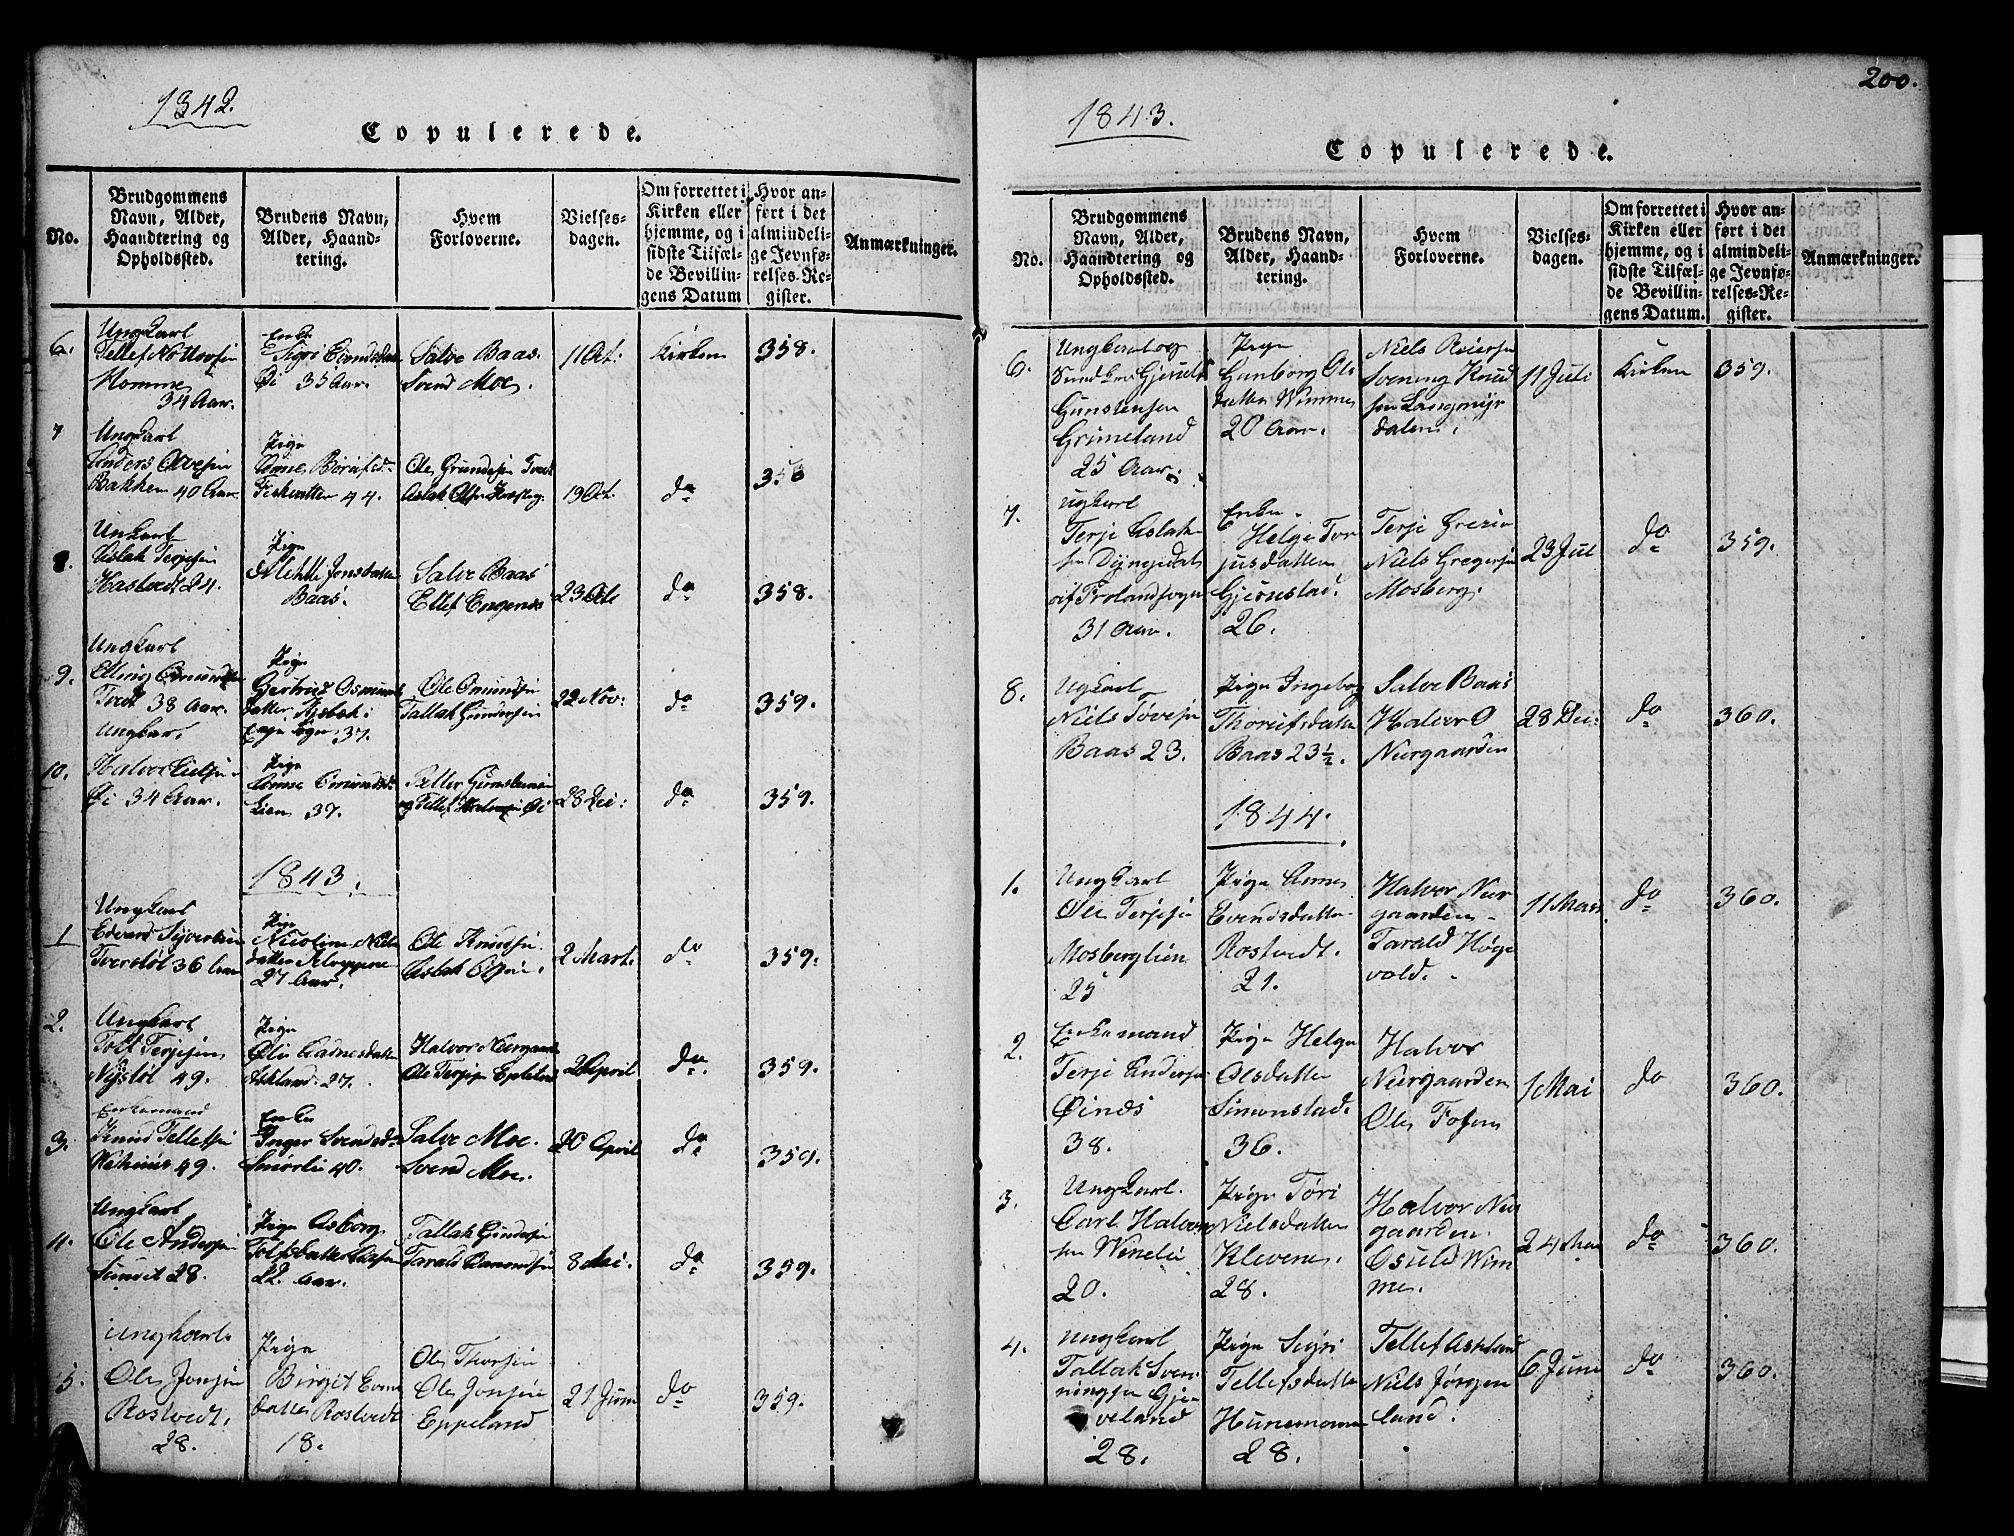 1842.
Copulerede.
No.
Brudgommens
Navn, Alder,
Haandtering og
Opholdssted.
Brudens Navn,
Alder, Haand-
tering.
Hvem
Forloverne.
Vielses-
dagen.
Om forrettet i
Kirken eller
hjemme, og i
sidste Tilfæl-
de Bevillin-
gens Datum
Hvor an-
ført i det
almindeli-
ge Jevnfø-
relses-Re-
gister.
Anmærkninger.
6.
Ungkarl
Tellef
Homme
34 Aar.
Enke
Sigri
Øi 35 Aar.
Salve Baas.
Svend Moe.
11 Oct:
Kirken
358.
7
Ungkarl
Anders
Bakken 40 Aar
Pige
Anne
44.
Ole Tveit
Aslak
19 Oct.
do
358
8.
Unkarl
Aslak Terjesen
Hastvedt 24.
Pige
Mette Jonsdatter
Baas.
Salve Baas
Ellef Engenes
23 Oct
do
358.
9.
Ungkarl
Elling
Tveit 38 Aar.
Pige
Gertrud Osmunds
datter
37.
Ole
Tallak Gundersen
22 Nov:
do
359.
10.
Ungkar.
Halvor
Øi 34 Aar.
Pige
Anne
Lien 37.
Tellef Gunstensen
og Tellef Øi
28 Dec:
do
359.
1843.
1
Ungkarl
Edvard Syvertsen
Tverstøl 36 Aar
Pige
Nicoline Niels
datter
27 Aar.
Ole Knudsen.
Aslak
2 Mart.
do
359.
2.
Ungkarl
Tolf Terjesen
Nystøl 49.
Pige
Oli Aadnesdatter
Askland 27.
Halvor Neergaarden
Ole Terjesen Epeland
April
do.
359.
3.
Enkemand
Knud Tellefsen
49.
Enke
Inger Svendsd.
Smørlie 40.
Salve Moe.
Svend Moe.
20 April
do
359.
4.
Ungkarl
Ole Andersen
28.
Pige Asborg
Tolfsdatter
22. Aar.
Tallak Gundersen
Tarald
8 Mai:
do
359.
5.
Ungkarl.
Ole Jonsen
Rostvedt.
28.
Pige
Birgit Even
datter Rostvedt
18.
Ole Thorsen
Ole Jonsen
Eppeland
21 Juni
do
359.
200.
1843.
Copulerede.
No.
Brudgommens
Navn, Alder,
Haandtering og
Opholdssted.
Brudens Navn,
Alder, Haand-
tering.
Hvem
Forloverne.
Vielses-
dagen.
Om forrettet i
Kirken eller
hjemme, og i
sidste Tilfæl-
de Bevillin-
gens Datum.
Hvor an-
ført i det
almindeli-
ge Jevnfø-
relses-Re-
gister.
Anmærkninger.
6.
Ungkarl og
Gunstensen
Grimeland
25 Aar.
Pige
Gunborg Ols
datter Wimme
20 Aar.
Niels Reiersen
Svening Knud
sen Langmyr
dalen.
11 Juli
Kirken
359.
7.
Ugkarl
Terje Aslak
sen
af Frolandsogn
31 Aar.
Enke
Helge Tor
jusdatter
Gjeonstad.
26.
Terje
Niels Gregersen
Mosberg.
23 Jul
do
359.
8.
Ugkarl
Niels Tovesen
Baas 23.
Pige Ingeborg
Baas 23½.
Salve Baas
Halvor O
Neergaarden
28 Dec:
do
360.
1844.
1.
Ungkarl
Ole Terjesen
Mosberglien
25
Pige Anne
Evendsdatter
Rostvedt.
21.
Halvor Neer
gaarden
Tarald Høge
vold.
11 Mars
do
360.
2.
Enkemand
Terje Andersen
Øinæs
38.
Pige Helge
Olsdatter
Simonstad.
36.
Halvor
Neergaarden
Ole Fosen
1 Mai
do
360.
3.
Ungkarl.
Carl Halvor
sen
20.
Pige Tøri
Nielsdatter
Klevene.
28.
Halvor Neer
gaarden.
Osuld Wim
me.
24 Mai
do
360.
4.
Ungkarl
Tallak Sven
ningsen Gje
veland
28.
Pige Sigri
Tellefsdatter
Hunemoren
28.
Tellef Askland
Niels Jørgen
land.
6 Juni
do
360.